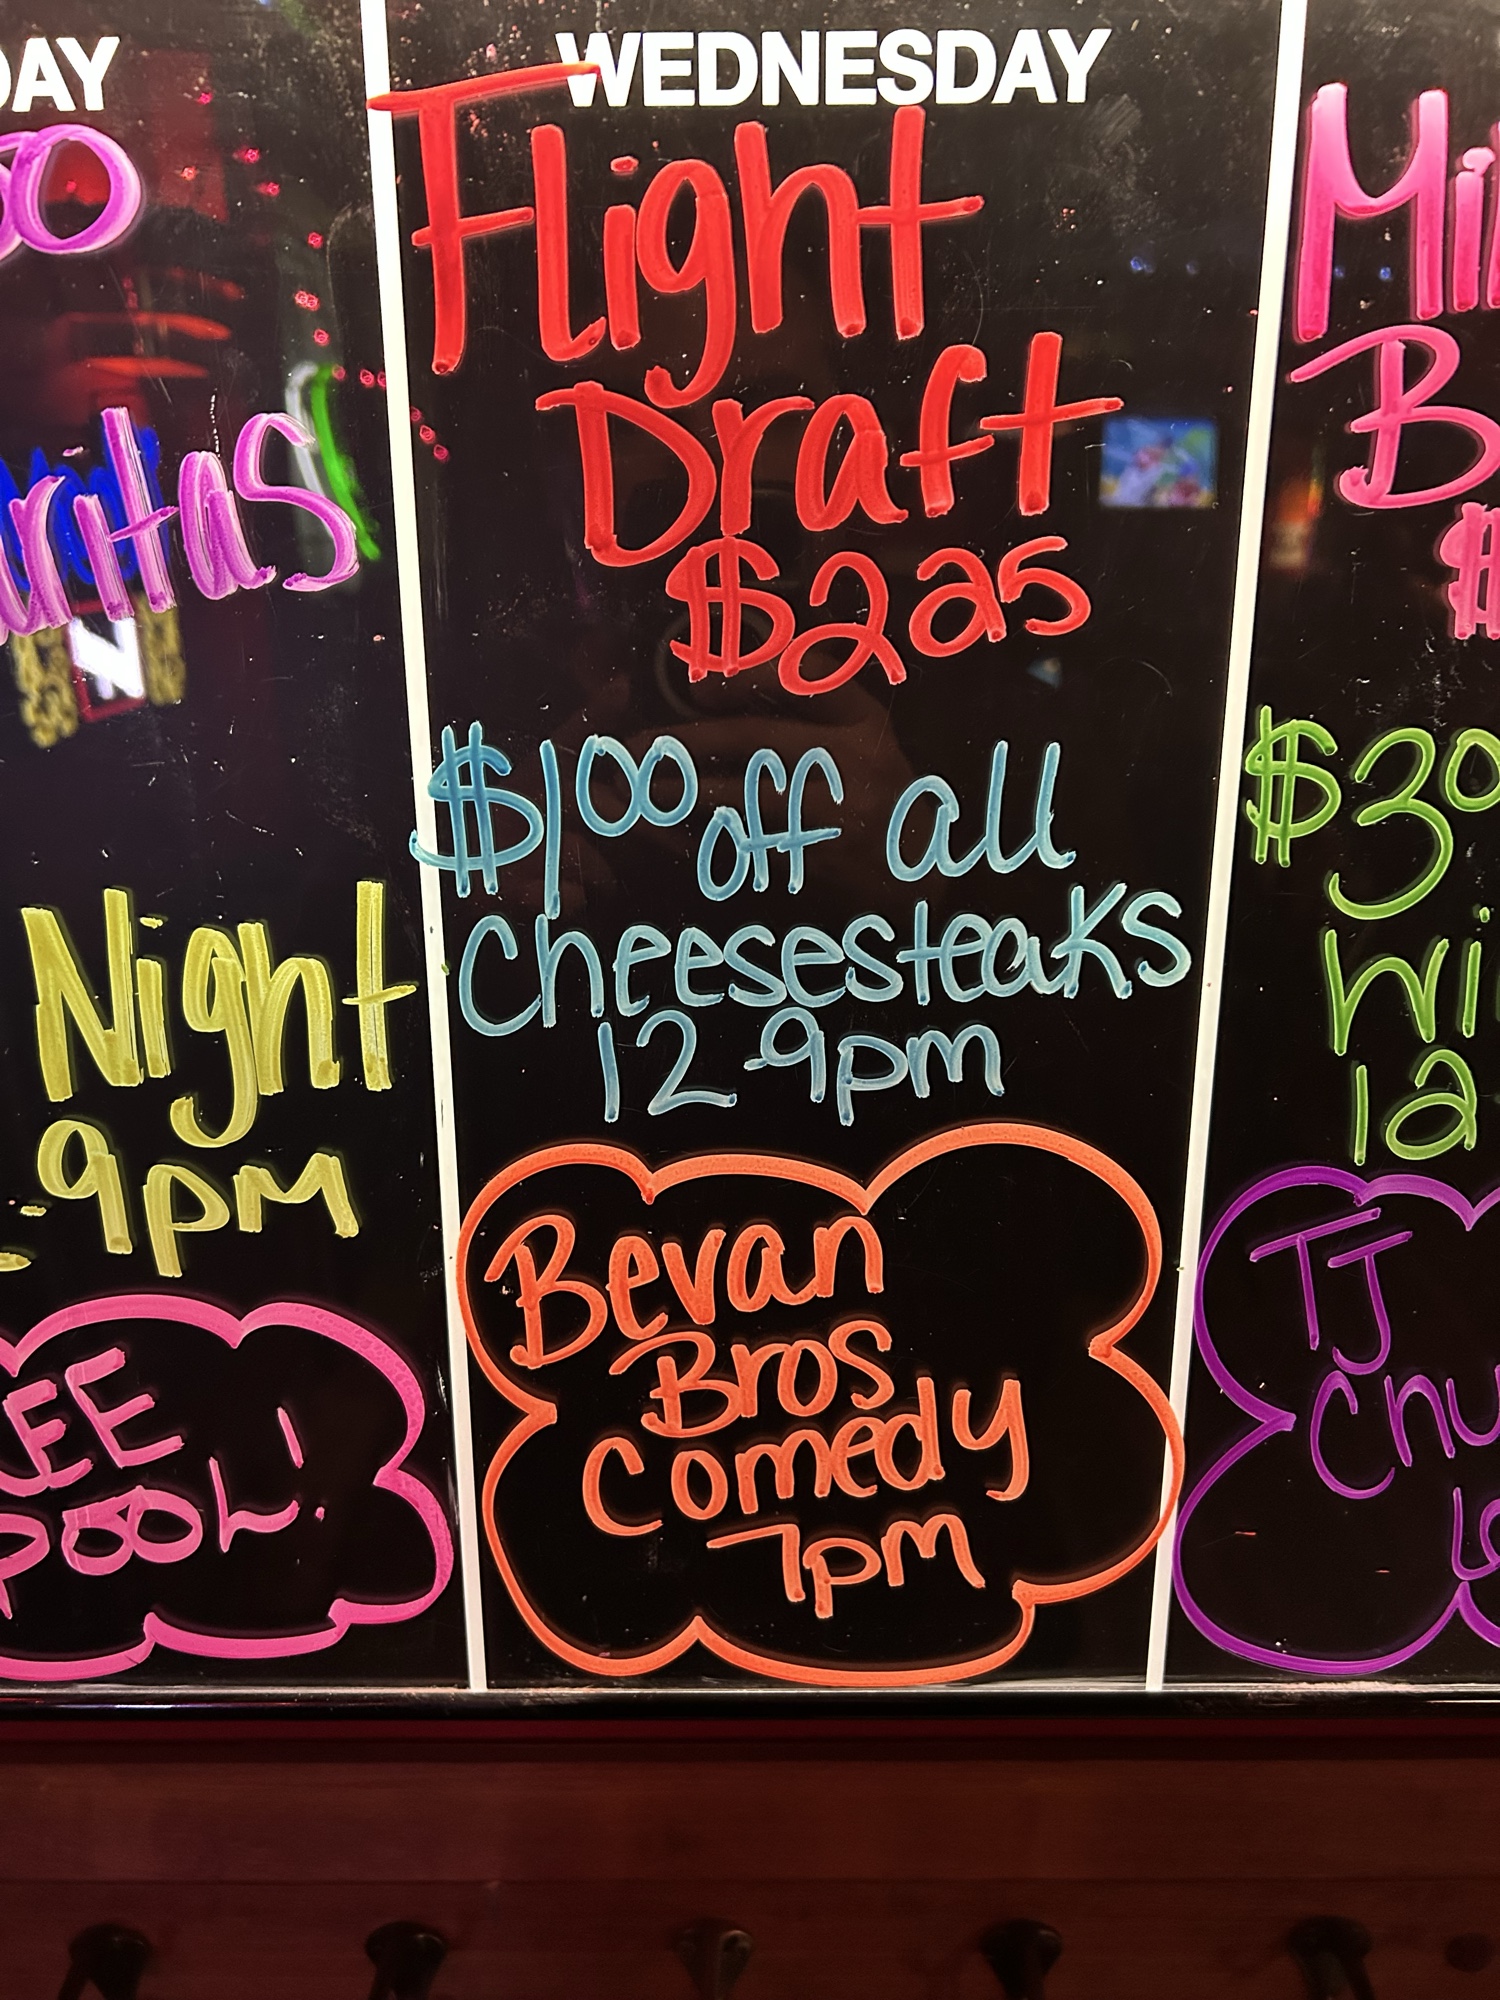 DAY
ritas
Night
9pm
EE
POOL!
WEDNESDAY
Flight
Draft
$225
$100 off all
Cheesesteaks
12-9pm
Bevan
Bros
Comedy
7pm
$30
12
TJ